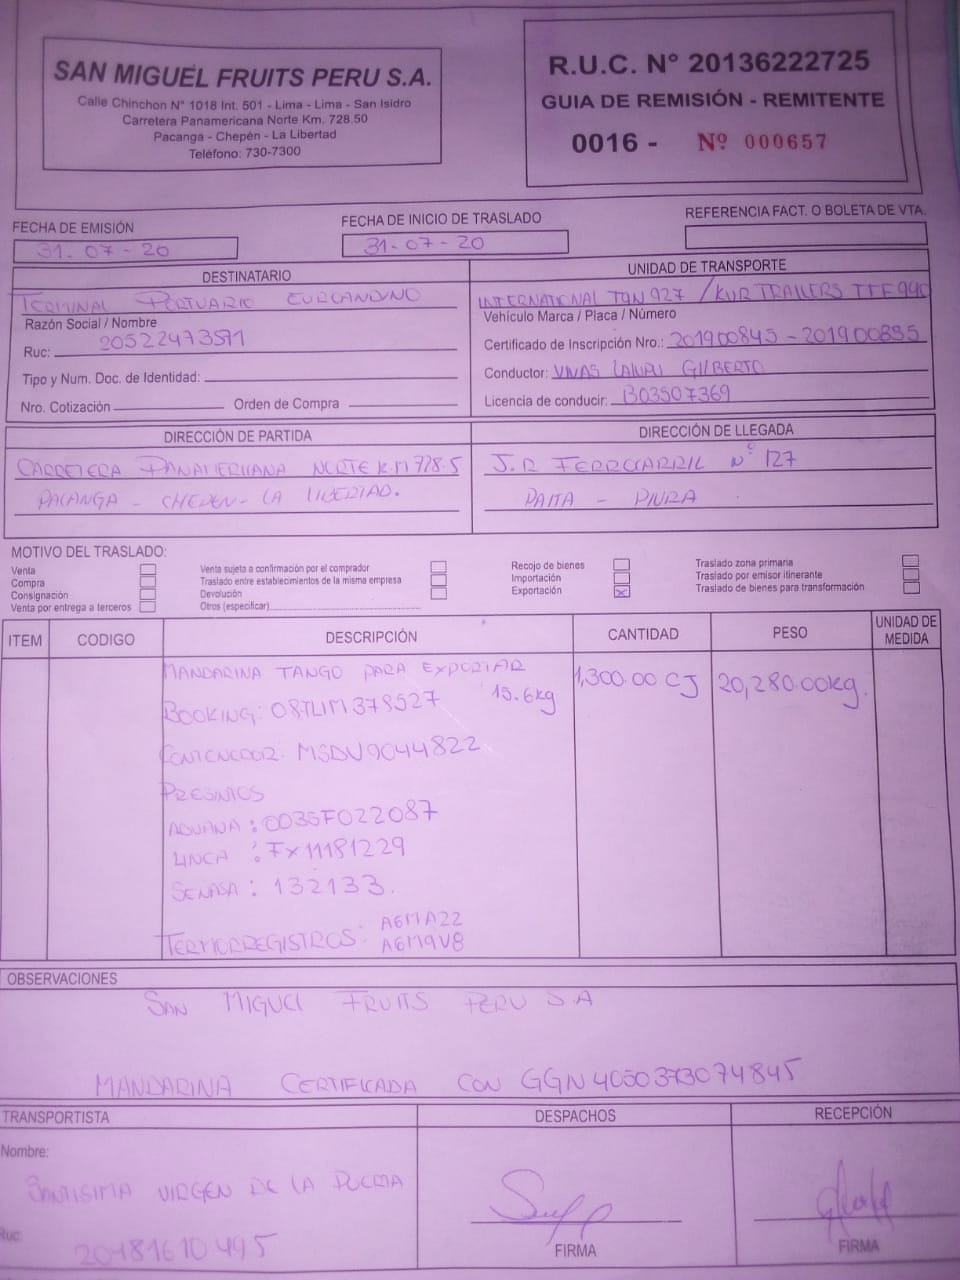 SAN MIGUEL FRUITS PERU S.A.
Calle Chinchon N° 1018 Int. 501 - Lima - Lima - San Isidro
Carretera Panamericana Norte Km. 728.50
Pacanga - Chepén - La Libertad
Teléfono: 730-7300
R.U.C. N° 20136222725
GUIA DE REMISIÓN - REMITENTE
0016 - Nº 000657
FECHA DE EMISIÓN
31-07-20
FECHA DE INICIO DE TRASLADO
31-07-20
REFERENCIA FACT. O BOLETA DE VTA.
DESTINATARIO
TERMINAL PORTUARIO EUROANDINO
Razón Social / Nombre
Ruc: 20522473571
Tipo y Num. Doc. de Identidad:
Nro. Cotización Orden de Compra
UNIDAD DE TRANSPORTE
INTERNATIONAL TQN 927 / KUR TRAILERS TTF 990
Vehículo Marca / Placa / Número
Certificado de Inscripción Nro.: 201900845 - 201900835
Conductor: VIVAS GILBERTO
Licencia de conducir: B03507369
DIRECCIÓN DE PARTIDA
CARRETERA PANAMERICANA NORTE K.M 728.5
PACANGA - CHEPEN - LA LIBERTAD.
DIRECCIÓN DE LLEGADA
J.R FERROCARRIL N° 127
PAITA - PIURA
MOTIVO DEL TRASLADO:
Venta
Compra
Consignación
Venta por entrega a terceros
Venta sujeta a confirmación por el comprador
Traslado entre establecimientos de la misma empresa
Devolución
Otros (especificar)
Recojo de bienes
Importación
Exportación X
Traslado zona primaria
Traslado por emisor itinerante
Traslado de bienes para transformación
ITEM CODIGO DESCRIPCIÓN CANTIDAD PESO UNIDAD DE MEDIDA
MANDARINA TANGO PARA EXPORTAR 1,300.00 CJ 20,280.00kg.
BOOKING: 087LIM378527 15.6kg
CONTENEDOR: MSDU9044822
PRESINTOS
ADUANA : 0035F022087
LINEA : FX11181229
SENASA : 132133.
TERMORREGISTROS: A6MA22
A6M9V8
OBSERVACIONES
SAN MIGUEL FRUITS PERU S.A
MANDARINA CERTIFICADA CON GGN 4050373074845
TRANSPORTISTA
Nombre:
SANTISIMA VIRGEN DE LA PUERTA
Ruc: 20481610495
DESPACHOS
FIRMA
RECEPCIÓN
FIRMA